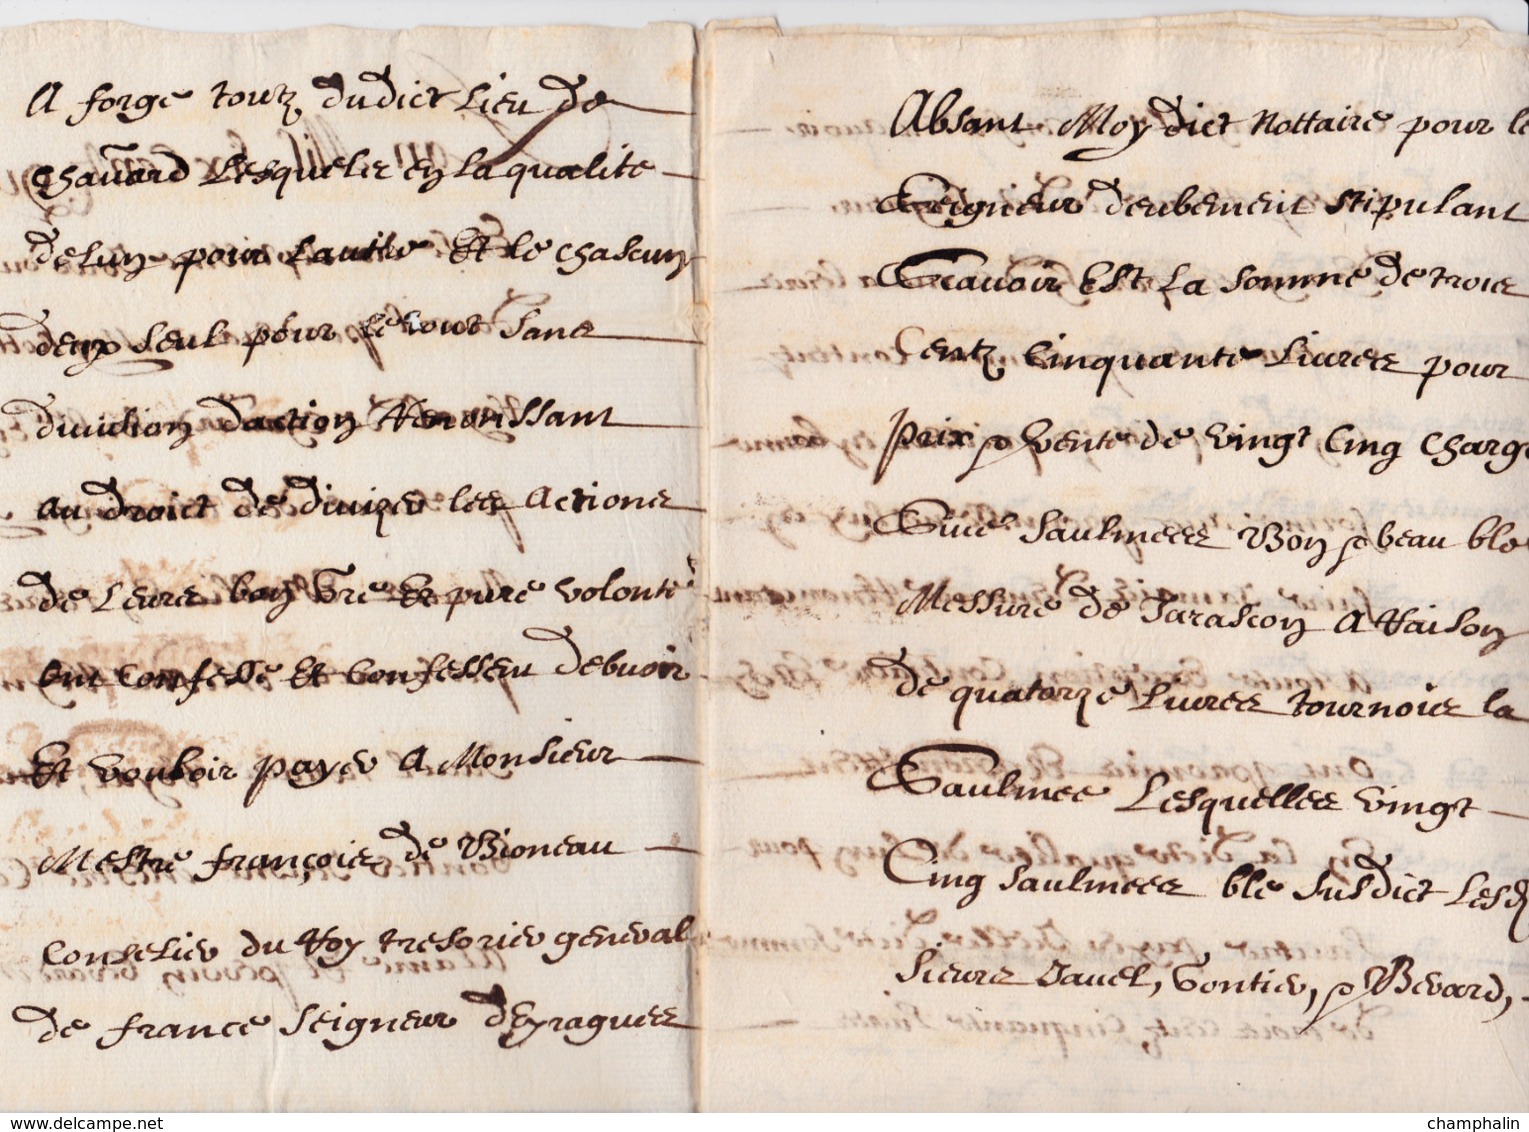 A forge toutz dudict Lieu de
Chavard Lesquelz en la qualité
de lun pour lautre Et le chascun
deux seul pour le tout sans
division daction Renonssant
au droict de divizer les actions
de Leurs bon gré Et pure volonté
Ont confessé Et confessent debvoir
Et vouloir payer A Monsieur
Mestre françois de Bioneau
Conselier du Roy tresorier general
de france Seigneur dEyragues
Absant Moy dict Nottaire pour le
Seigneur deubement stipulant
Scavoir Est La somme de trois
Centz Cinquante Livres pour
prix & vente de vingt Cinq charge
Saulmees Bon & beau ble
Messure de Tarascon A Raison
de quatorze Livres tournois la
Saulmee Lesquelles vingt
Cinq saulmees ble susdict Lesd
Sieurs Javel, Gontier, & Berard,
www.delcampe.net
champhalin